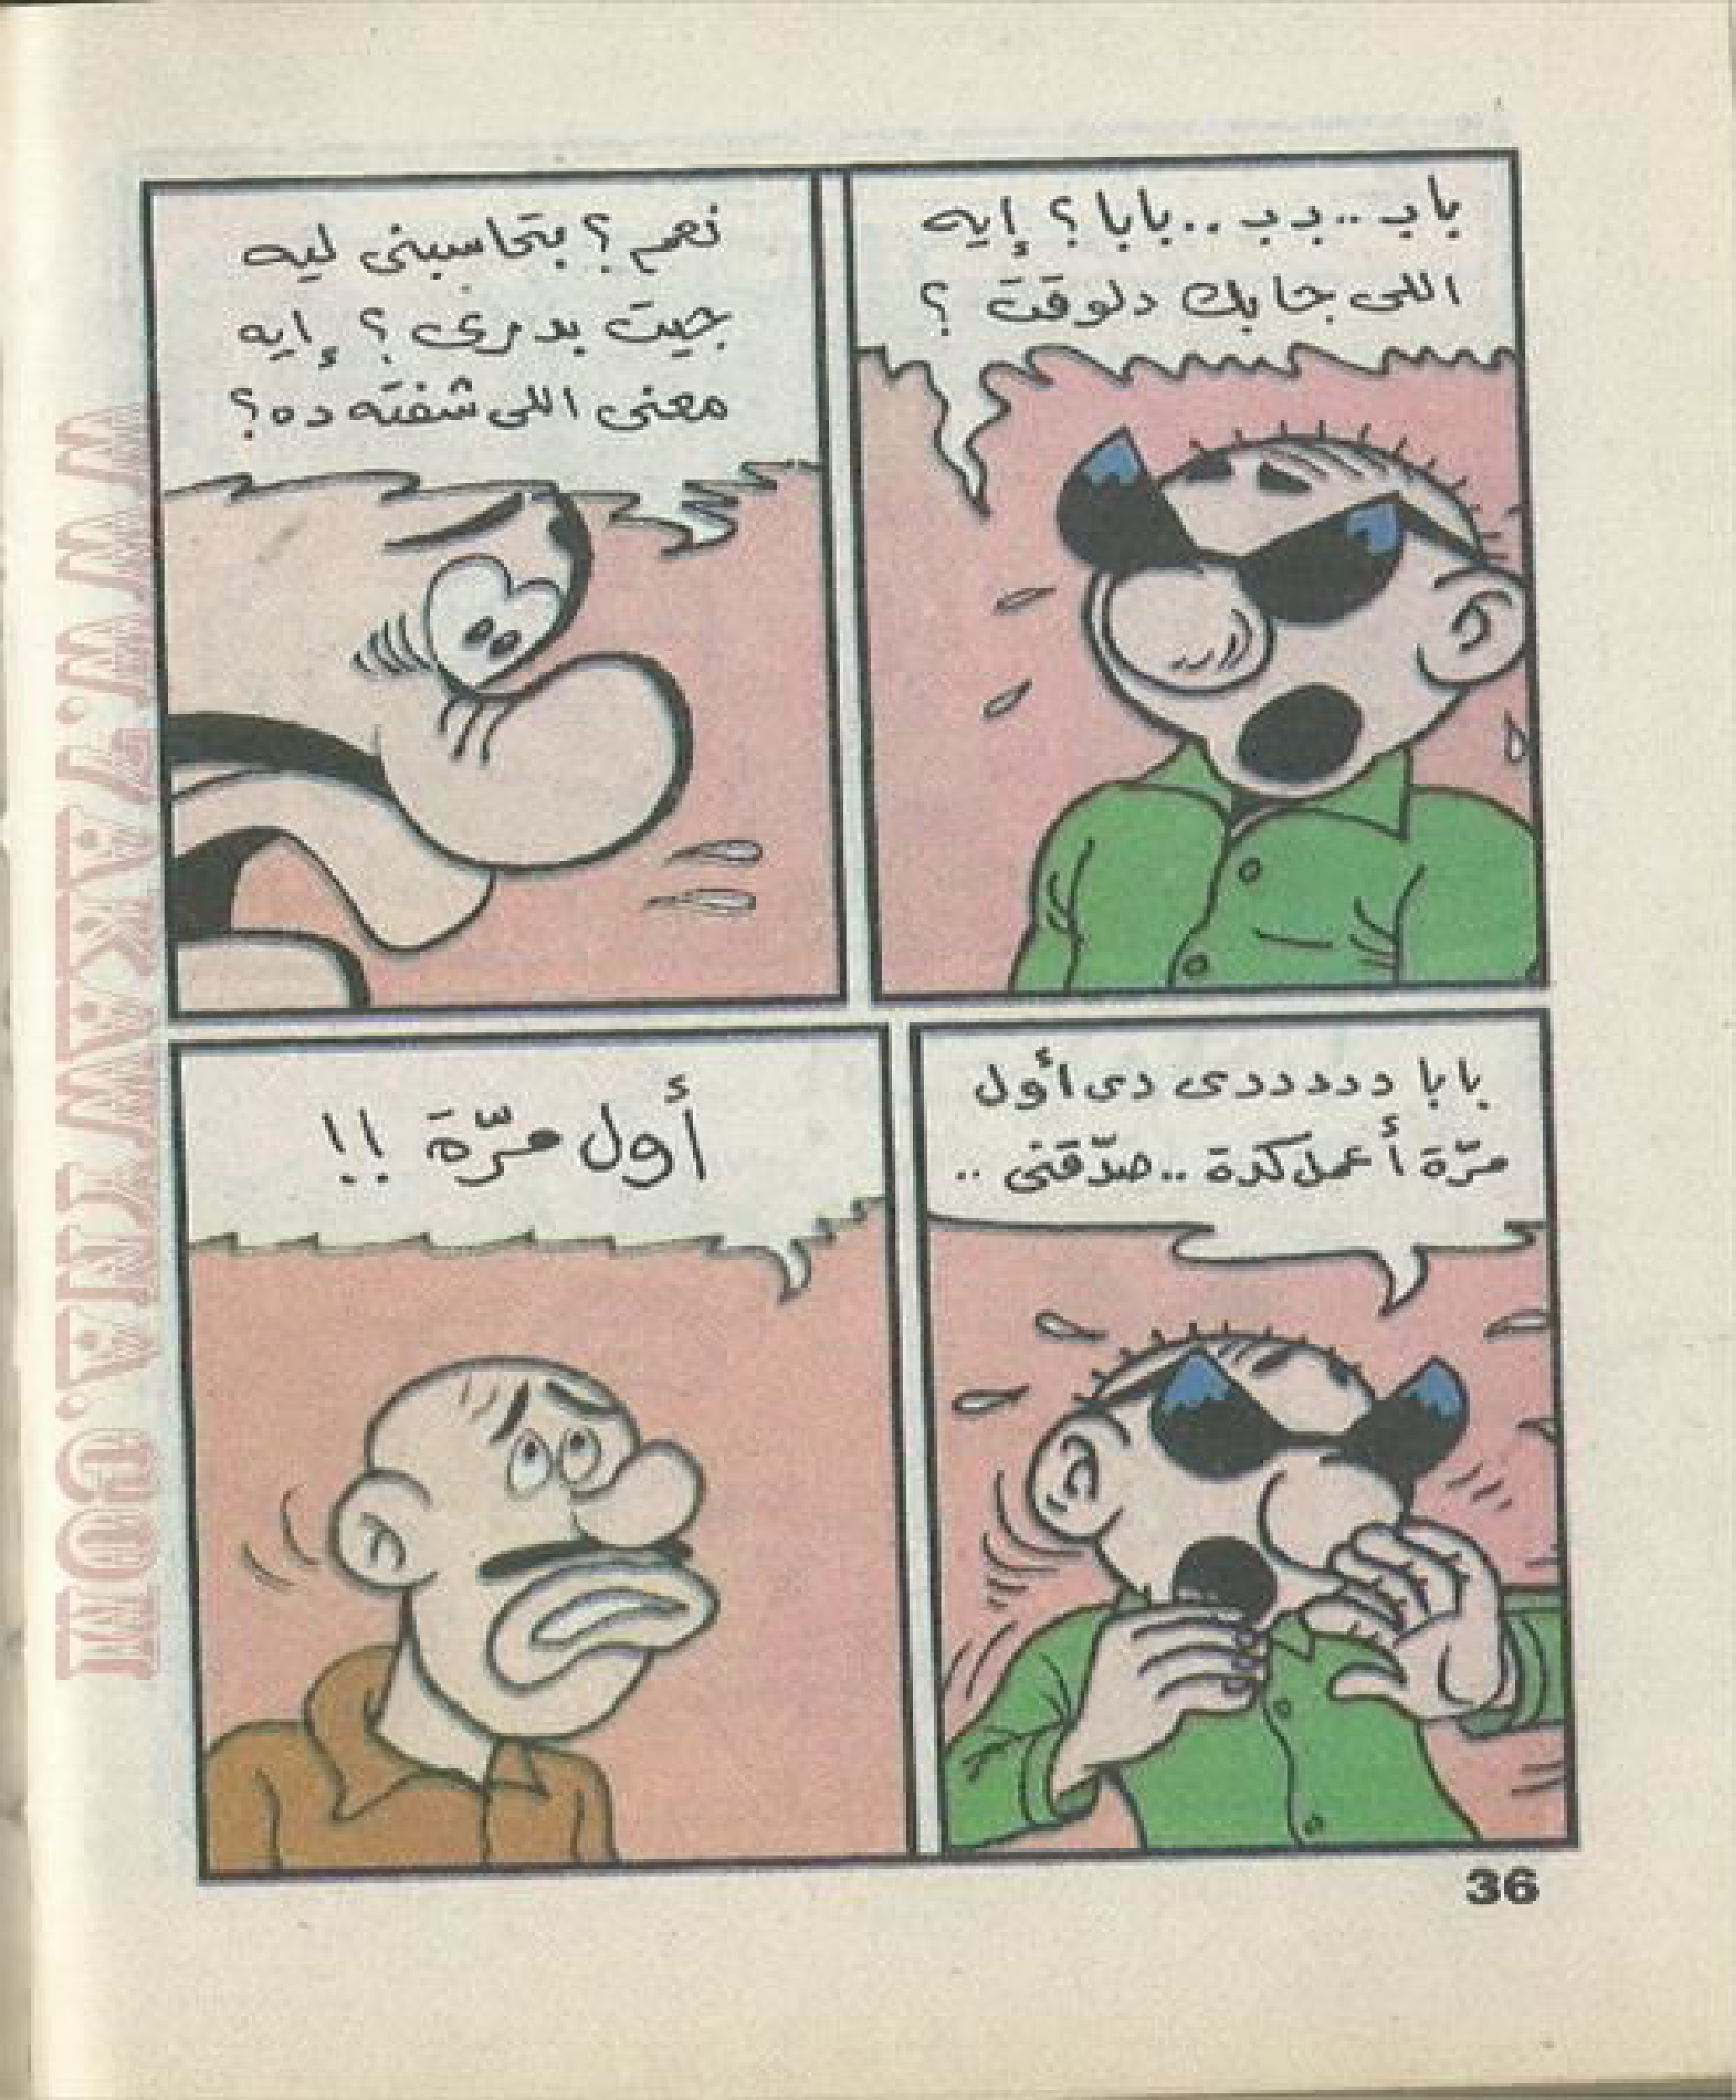 باب..بب..بابا؟ إيه
اللى جابك دلوقت ؟
نعم؟ بتحاسبنى ليه
جيت بدرى؟ إيه
معنى اللى شفته ده؟
بابا ددددددى دى أول
مرّة أعمل كدة..صدّقنى..
أول مرّة !!
36
WWW.TAKAWTINA.COM